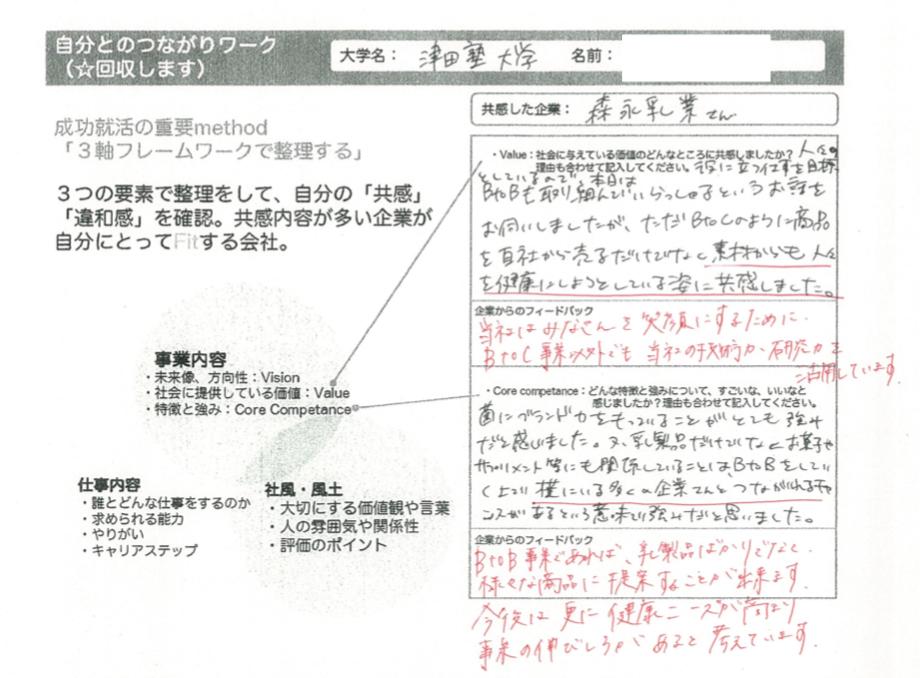 自分とのつながりワーク
（☆回収します）
大学名： 津田塾大学 名前：
成功就活の重要method
「３軸フレームワークで整理する」
３つの要素で整理をして、自分の「共感」
「違和感」を確認。共感内容が多い企業が
自分にとってFitする会社。
事業内容
・未来像、方向性：Vision
・社会に提供している価値：Value
・特徴と強み：Core Competance
仕事内容
・誰とどんな仕事をするのか
・求められる能力
・やりがい
・キャリアステップ
社風・風土
・大切にする価値観や言葉
・人の雰囲気や関係性
・評価のポイント
共感した企業： 森永乳業さん
・Value：社会に与えている価値のどんなところに共感しましたか？ 人々の
理由も合わせて記入してください。 役に立つ仕事を目標
としているので、本日は
BtoBも取り組んでいらっしゃるというお話を
お伺いしましたが、ただBtoCのように商品
を自社から売るだけでなく素材からも人々
を健康にしようとしている姿に共感しました。
企業からのフィードバック
当社はみなさんを笑顔にするために、
BtoC事業以外でも当社の技術力・研究力を
活用しています。
・Core competance：どんな特徴と強みについて、すごいな、いいなと
感じましたか？理由も合わせて記入してください。
菌にブランド力をもっていることがとても強み
だと感じました。又、乳製品だけでなくお菓子や
サプリメント等にも関係していることは、BtoBをしてい
く上で横にいる多くの企業さんとつながれるチャ
ンスがあるという意味で強みだと思いました。
企業からのフィードバック
BtoB事業であれば、乳製品ばかりでなく
様々な商品に提案することが出来ます。
今後は更に健康ニーズが高まり
事業の伸びしろがあると考えています。